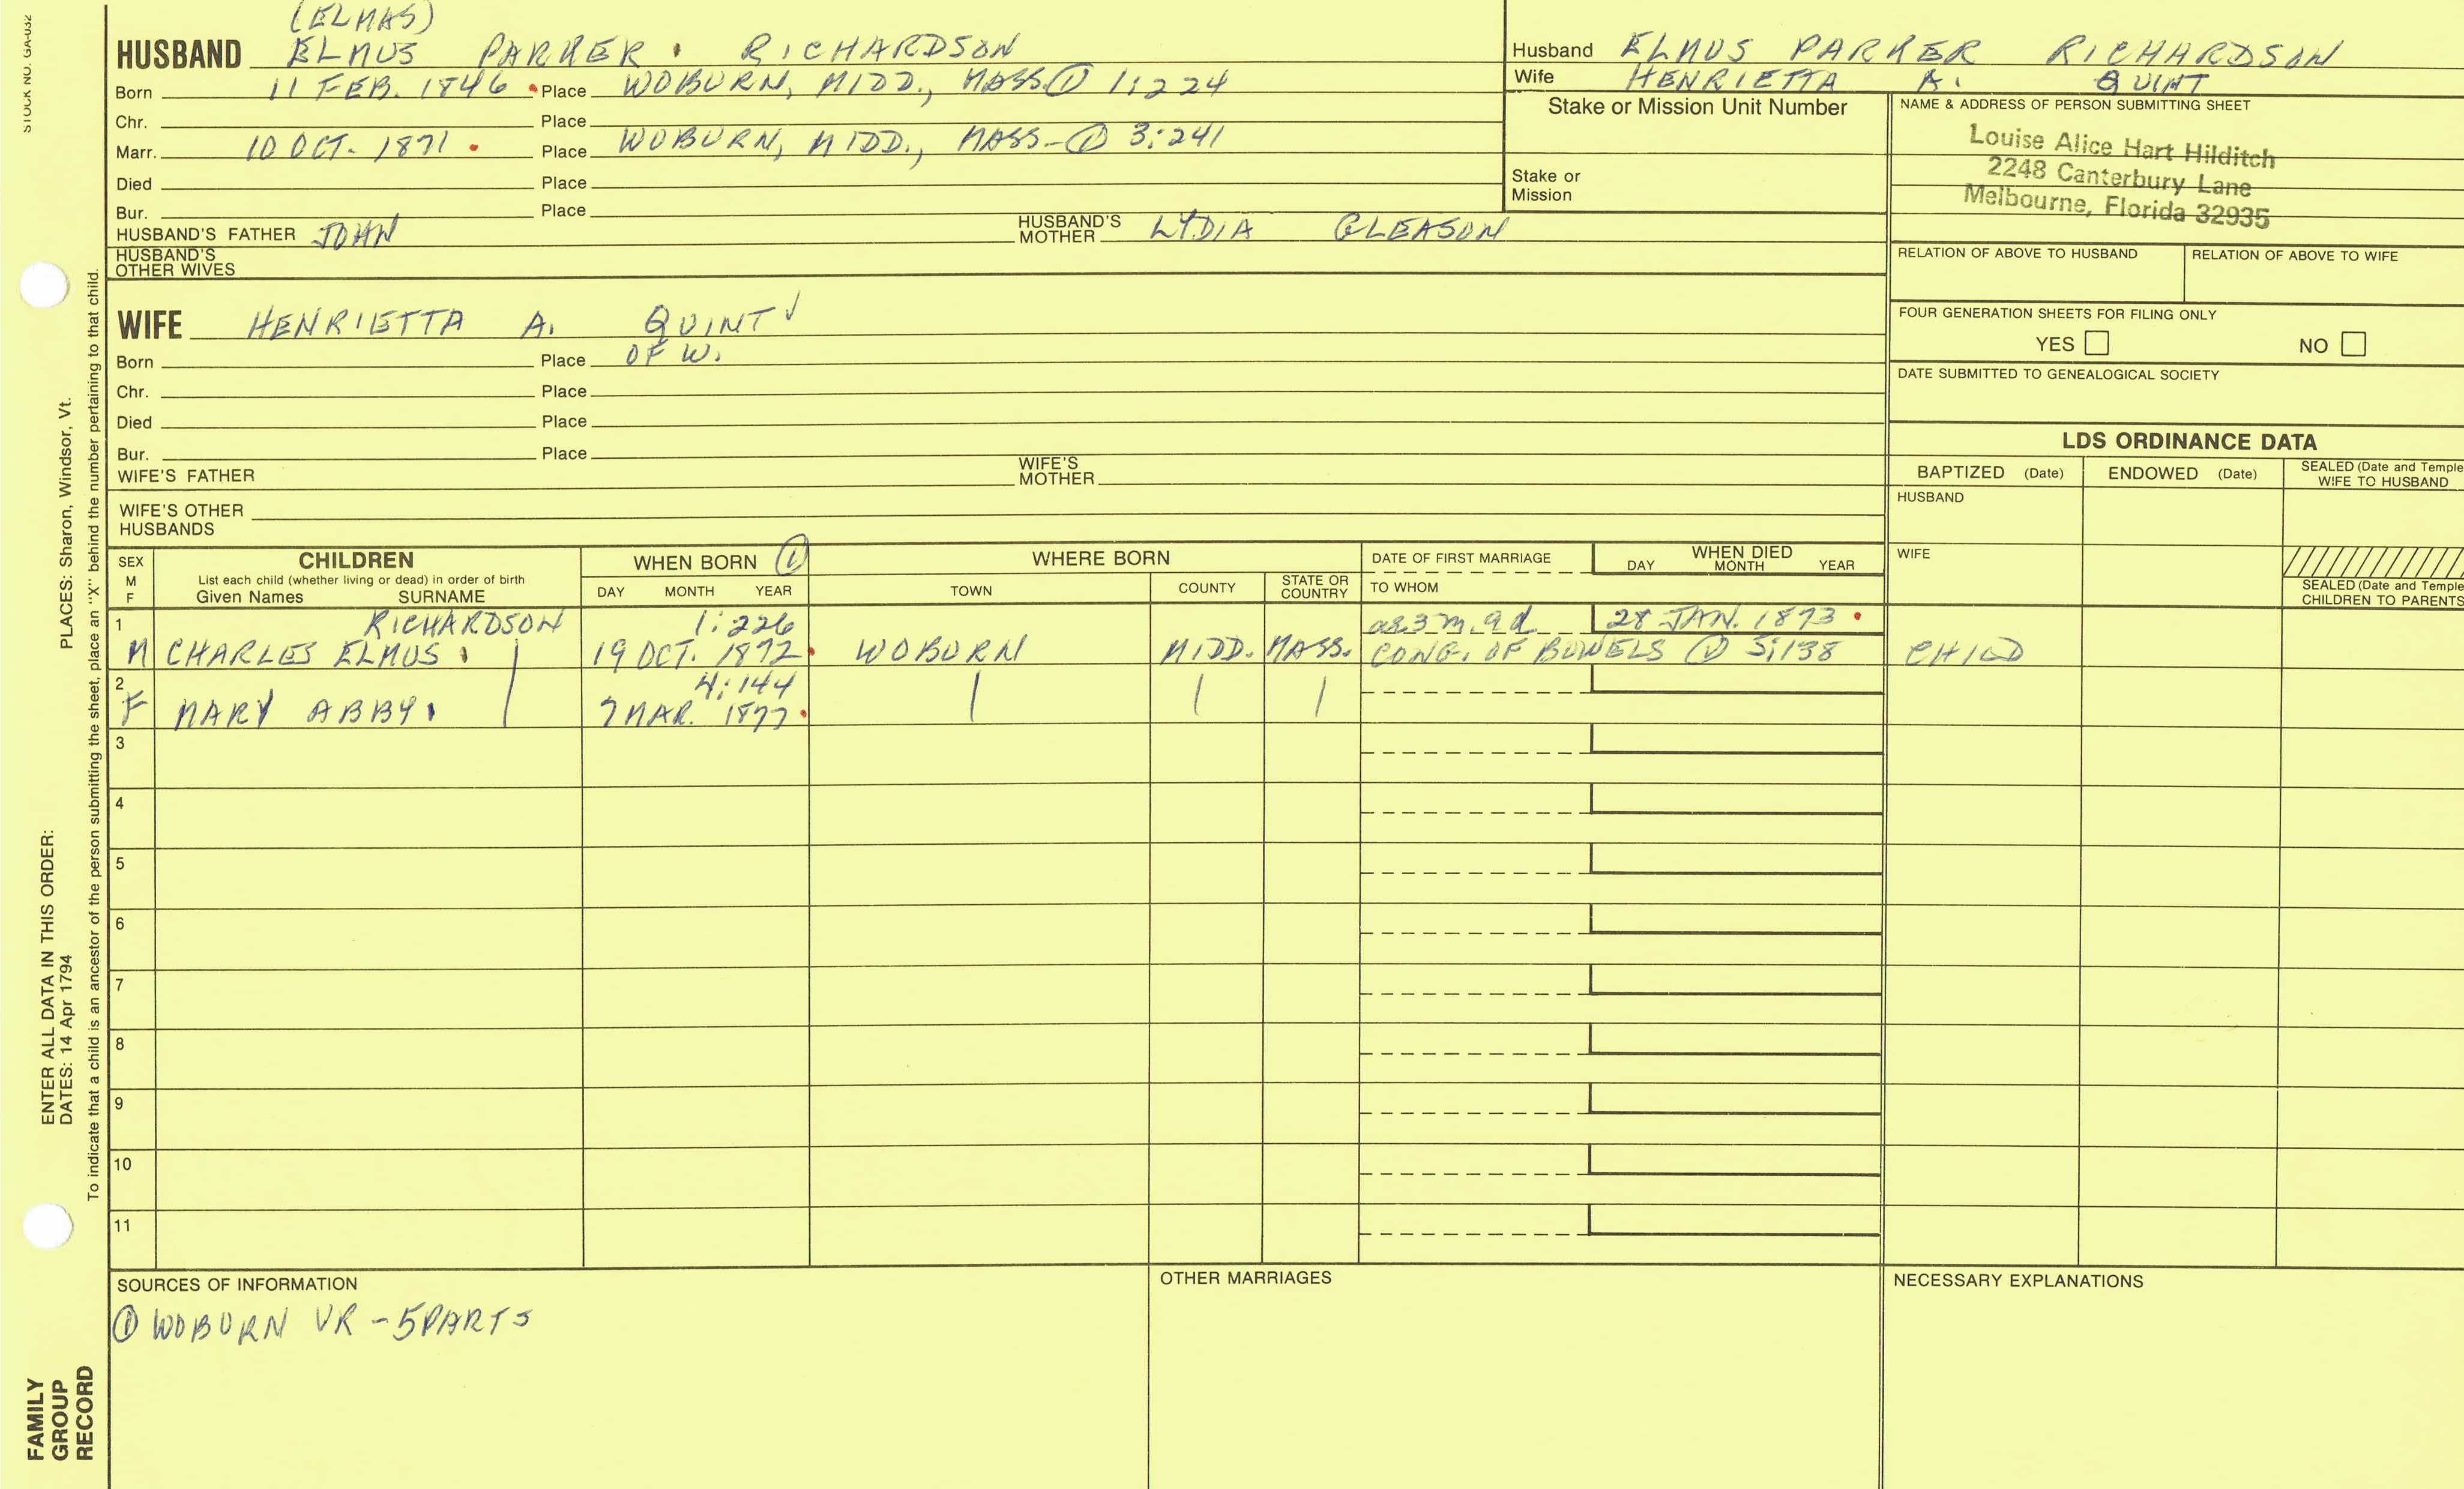 STOCK NO. GA-032
(ELMAS)
HUSBAND ELMUS PARKER RICHARDSON
Born 11 FEB. 1846 Place WOBURN, MIDD., MASS. ① 1:224
Chr. Place
Marr. 10 OCT. 1871 Place WOBURN, MIDD., MASS- ① 3:241
Died Place
Bur. Place
HUSBAND'S FATHER JOHN HUSBAND'S MOTHER LYDIA GLEASON
HUSBAND'S OTHER WIVES
WIFE HENRIETTA A. QUINT ✓
Born Place OF W.
Chr. Place
Died Place
Bur. Place
WIFE'S FATHER WIFE'S MOTHER
WIFE'S OTHER HUSBANDS
Husband ELMUS PARKER RICHARDSON
Wife HENRIETTA A. QUINT
Stake or Mission Unit Number
Stake or Mission
NAME & ADDRESS OF PERSON SUBMITTING SHEET
Louise Alice Hart Hilditch
2248 Canterbury Lane
Melbourne, Florida 32935
RELATION OF ABOVE TO HUSBAND RELATION OF ABOVE TO WIFE
FOUR GENERATION SHEETS FOR FILING ONLY
YES NO
DATE SUBMITTED TO GENEALOGICAL SOCIETY
LDS ORDINANCE DATA
BAPTIZED (Date) ENDOWED (Date) SEALED (Date and Temple
WIFE TO HUSBAND
HUSBAND
WIFE
SEALED (Date and Temple
CHILDREN TO PARENTS
SEX M F
CHILDREN
List each child (whether living or dead) in order of birth
Given Names SURNAME
WHEN BORN ①
DAY MONTH YEAR
WHERE BORN
TOWN COUNTY STATE OR COUNTRY
DATE OF FIRST MARRIAGE
TO WHOM
WHEN DIED
DAY MONTH YEAR
1 RICHARDSON 1:226 ae 3 m. 9 d 28 JAN. 1873
M CHARLES ELMUS 19 OCT. 1872 WOBURN MIDD. MASS. CONG. OF BOWELS ① 5:138 CHILD
2 4:144
F MARY ABBY 7 MAR. 1877
3
4
5
6
7
8
9
10
11
SOURCES OF INFORMATION
① WOBURN VR - 5 PARTS
OTHER MARRIAGES
NECESSARY EXPLANATIONS
ENTER ALL DATA IN THIS ORDER:
DATES: 14 Apr 1794 PLACES: Sharon, Windsor, Vt.
To indicate that a child is an ancestor of the person submitting the sheet, place an "X" behind the number pertaining to that child.
FAMILY
GROUP
RECORD